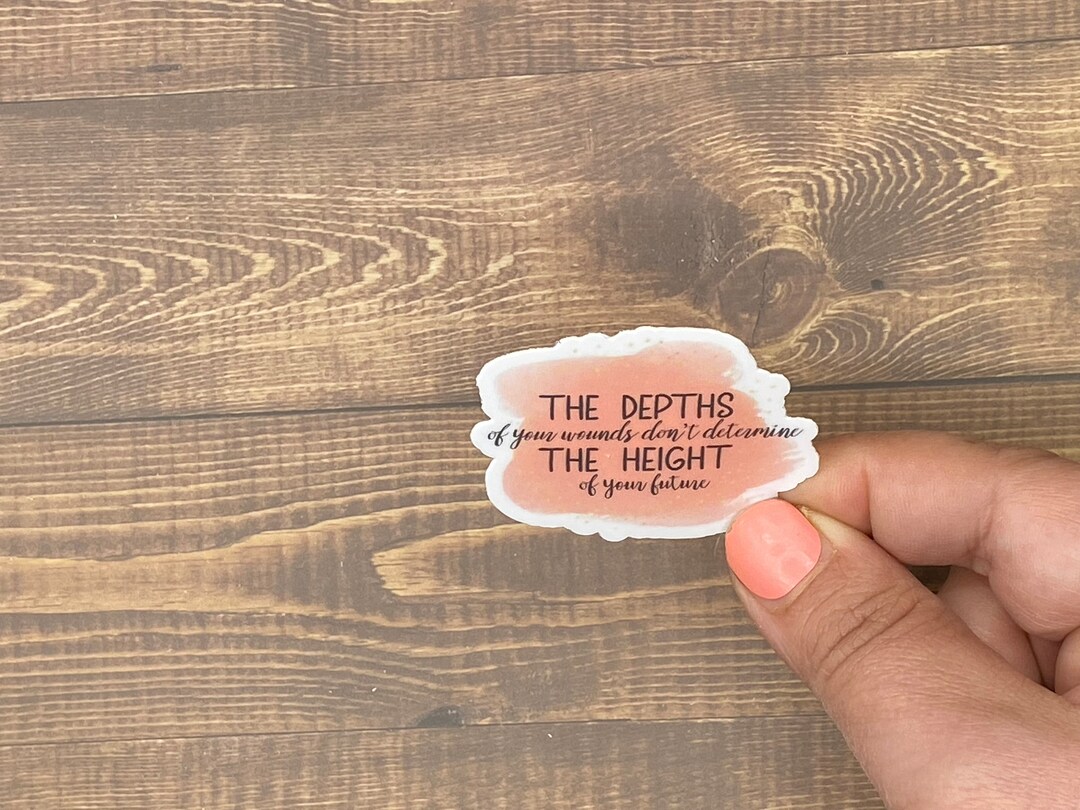 THE DEPTHS
of your wounds don't determine
THE HEIGHT
of your future